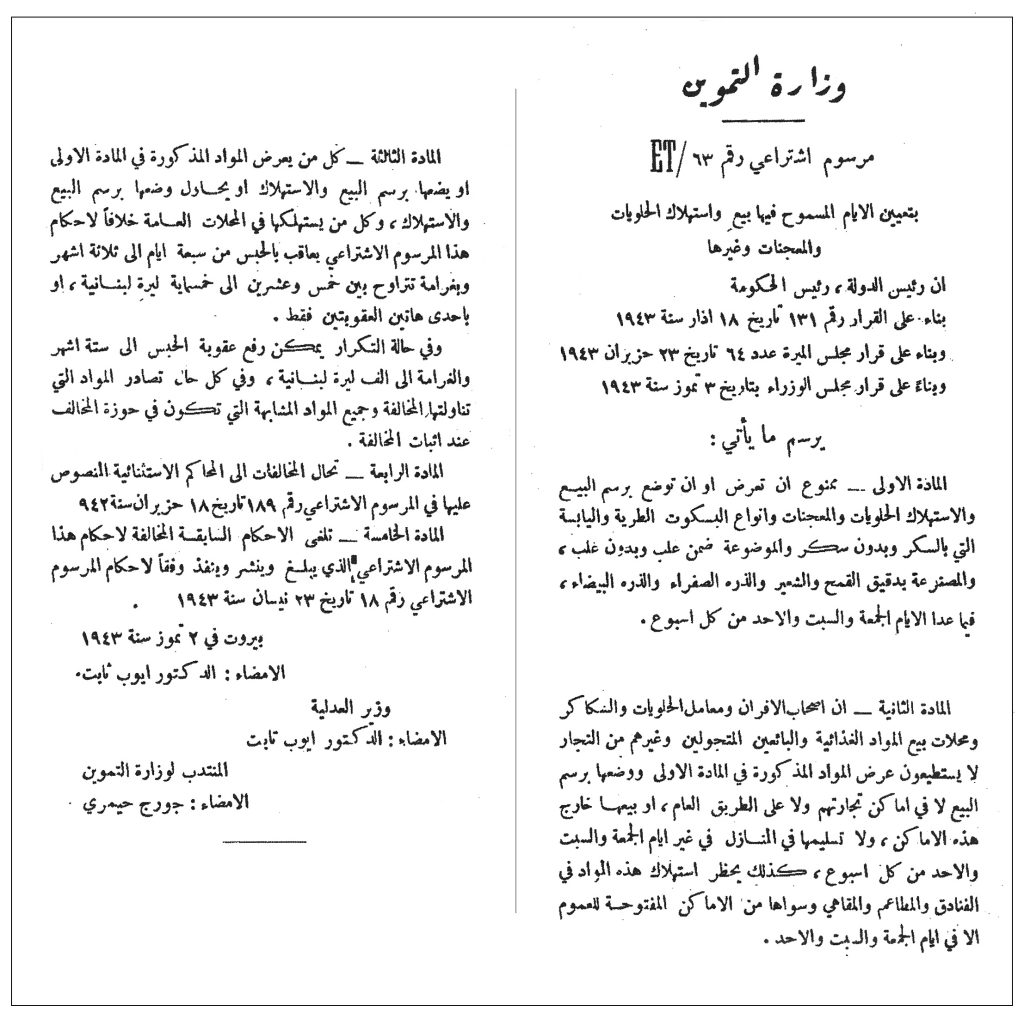 وزارة التموين
مرسوم اشتراعي رقم ٦٣ /ET
بتعيين الايام المسموح فيها بيع واستهلاك الحلويات
والمعجنات وغيرها
ان رئيس الدولة، رئيس الحكومة
بناء على القرار رقم ١٣١ تاريخ ١٨ اذار سنة ١٩٤٣
وبناء على قرار مجلس الميرة عدد ٦٤ تاريخ ٢٣ حزيران ١٩٤٣
وبناءً على قرار مجلس الوزراء بتاريخ ٣ تموز سنة ١٩٤٣
يرسم ما يأتي :
المادة الاولى ــ ممنوع ان تعرض او ان توضع برسم البيع
والاستهلاك الحلويات والمعجنات وانواع البسكوت الطرية واليابسة
التي بالسكر وبدون سكر والموضوعة ضمن علب وبدون علب،
والمصنوعة بدقيق القمح والشعير والذره الصفراء والذره البيضاء،
فيما عدا الايام الجمعة والسبت والاحد من كل اسبوع .
المادة الثانية ــ ان اصحاب الافران ومعامل الحلويات والسكاكر
ومحلات بيع المواد الغذائية والبائعين المتجولين وغيرهم من التجار
لا يستطيعون عرض المواد المذكورة في المادة الاولى ووضعها برسم
البيع لا في اماكن تجارتهم ولا على الطريق العام، او بيعها خارج
هذه الاماكن، ولا تسليمها في المنازل في غير ايام الجمعة والسبت
والاحد من كل اسبوع، كذلك يحظر استهلاك هذه المواد في
الفنادق والمطاعم والمقاهي وسواها من الاماكن المفتوحة للعموم
الا في ايام الجمعة والسبت والاحد .
المادة الثالثة ــ كل من يعرض المواد المذكورة في المادة الاولى
او يضعها برسم البيع والاستهلاك او يحاول وضعها برسم البيع
والاستهلاك، وكل من يستهلكها في المحلات العامة خلافاً لاحكام
هذا المرسوم الاشتراعي يعاقب بالحبس من سبعة ايام الى ثلاثة اشهر
وبغرامة تتراوح بين خمس وعشرين الى خمسماية ليرة لبنانية، او
باحدى هاتين العقوبتين فقط .
وفي حالة التكرار يمكن رفع عقوبة الحبس الى ستة اشهر
والغرامة الى الف ليرة لبنانية، وفي كل حال تصادر المواد التي
تناولتها المخالفة وجميع المواد المشابهة التي تكون في حوزة المخالف
عند اثبات المخالفة .
المادة الرابعة ــ تحال المخالفات الى المحاكم الاستثنائية المنصوص
عليها في المرسوم الاشتراعي رقم ١٨٩ تاريخ ١٨ حزيران سنة ٩٤٢
المادة الخامسة ــ تلغى الاحكام السابقة المخالفة لاحكام هذا
المرسوم الاشتراعي الذي يبلغ وينشر وينفذ وفقاً لاحكام المرسوم
الاشتراعي رقم ١٨ تاريخ ٢٣ نيسان سنة ١٩٤٣ .
بيروت في ٢ تموز سنة ١٩٤٣
الامضاء : الدكتور ايوب ثابت.
وزير العدلية
الامضاء : الدكتور ايوب ثابت
المنتدب لوزارة التموين
الامضاء : جورج حيمري .